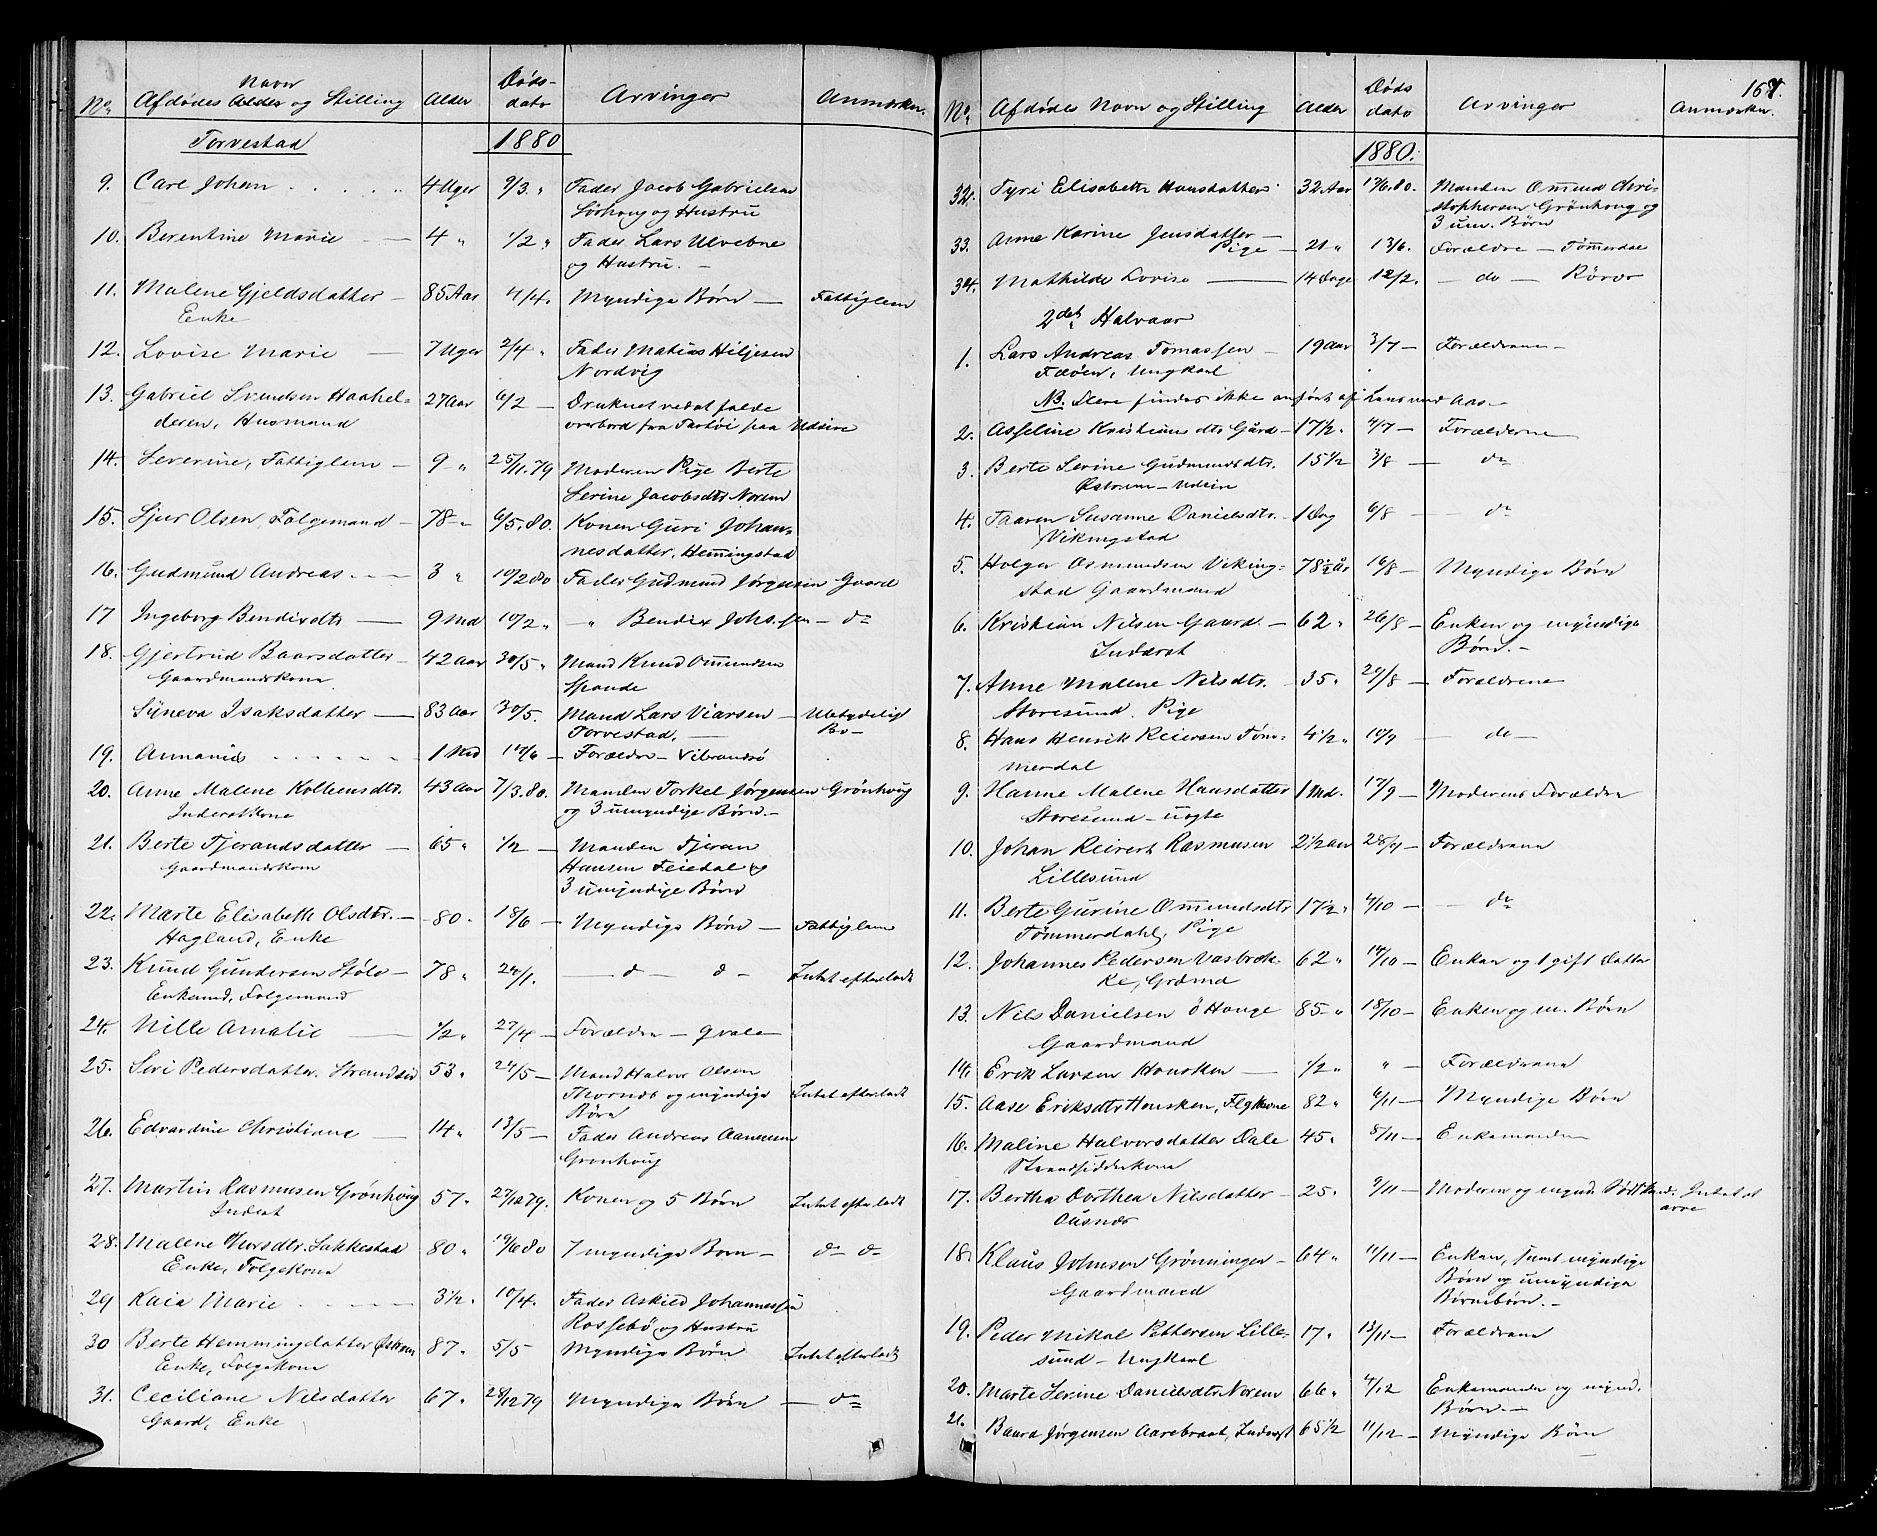 Navn
No. Afdødes Alder og Stilling Alder Døds-dato Arvinger Anmærkn.
Torvestad 1880
9. Carl Johan 4 Uger 9/3 " Fader Jacob Gabrielsen
Sørhaug og Hustru
10. Berentine Marie 4 " 1/2 " Fader Lars Ulvebne
og Hustru. —
11. Malene Gjeldsdatter — 85 Aar 4/4. Myndige Børn — Fattiglem
Enke
12. Lovise Marie — 7 Uger 2/4 " Fader Matias Hiljesen
Nordvig
13. Gabriel Svendsen Haahel- 27 Aar 6/2 — Druknet ved at falde
deren, Husmand overbord fra Fartøi paa Udsire
14. Severine, Fattiglem — 9 " 25/11.79 Moderen Pige Berte
Serine Jacobsdtr Norem
15. Sjur Olsen Folgemand — 78 " 6/5.80. Konen Guri Johan-
nesdatter, Hemmingstad
16. Gudmund Andreas — 3 " 10/2 80 Fader Gudmund Jørgensen Gaard
17 Ingeborg Bendixdtr — 9 Md 10/2 " — " Bendix Johs.sen — do
18. Gjertrud Baarsdatter — 42 Aar 30/5 " Mand Knud Ommundsen
Gaardmandskone Spande
Syneva Isaksdatter — 83 Aar 30/5. Mand Lars Viarsen — Ubetydeligt
Torvestad. — Bo —
19. Annanias 1 Md 14/6 — Forældre — Vibrandsø
20. Anne Malene Kolbensdtr. 43 Aar 7/3.80. Manden Torkel Jørgensen Grønhoug
Inderstkone og 3 umyndige Børn. —
21. Berte Tjerandsdatter — 65 " 1/2 — Manden Tjeran
Gaardmandskone Hansen Feiedal og
3 umyndige Børn
22. Marte Elisabeth Olsdtr. — 80. 18/6 — Myndige Børn — Fattiglem
Hagland, Enke
23. Knud Gundersen Støle — 78 " 24/1. — d — d — Intet efterladt
Enkemd, Folgemand
24. Nille Amalie — 1/2 " 27/4 — Forældre — Qvale
25. Siri Pedersdatter. Strandsid 53 " 24/5 — Mand Halvor Olsen
Thornes og myndige Intet efterladt
Børn
26. Edvardine Christiane — 14 " 13/5 — Fader Andreas Aanensen
Grønhoug
27. Martin Rasmusen Grønhoug 57 " 27/12 79. Konen og 5 Børn Intet efterladt
Inderst
28. Malene Thorsdtr. Sakkestad 80 " 19/6 80 7 myndige Børn — do do
Enke, Folgekone
29 Kaia Marie 3 1/2 " 10/4. Fader Askild Johannessen
Rossebø og Hustru
30 Berte Hemmingdatter Østrem 87 " 5/5 Myndige Børn Intet efterladt
Enke, Folgekone
31. Ceciliane Nilsdatter 67 " 28/12 79 Myndige Børn — do
Gaard, Enke
167.
No. Afdødes Navn og Stilling Alder Døds dato Arvinger Anmærkn.
1880.
32. Tyri Elisabeth Hansdatter 32 Aar 17/6.80. Manden Omund Chri-
stophersen Grønhoug og
3 um. Børn
33. Anne Karine Jensdatter —
Pige — 21 " 13/6. Forældre — Tømmerdal
34. Mathilde Lovise — 14 Dage 12/2. — do — Røvær
2det Halvaar
1. Lars Andreas Tomassen — 19 Aar 3/7 — Forældrene —
Fæøen, Ungkarl
NB. Flere findes ikke anført af Lensmd Aas —
2. Asseline Kristiansdtr Gård — 17 1/2 " 4/7 — Forælderne
3. Berte Serine Gudmundsdtr. 15 1/2 3/8 — do
Østrem — Udsire
4. Taaren Susanne Danielsdtr. 1 Dag 6/8 — do
Vikingstad
5. Holger Osmundsen Viking- 78 1/2 år 16/8 — Myndige Børn
stad Gaardmand
6. Kristian Nilsen Gaard — 62 " 26/8 — Enken og myndige
Inderst Børn. —
7. Anne Malene Nilsdtr. — 35 " 24/8 — Forældrene
Storesund. Pige
8. Hans Henrik Reiersen Tøm- 4 1/2 " 10/9 — do —
merdal
9. Hanne Malene Hansdatter 1 Md. 17/9 — Moderens Forældre
Storesund — uægte
10. Johan Reinert Rasmusen 2 1/2 aar 28/9 — Forældrene
Lillesund
11. Berte Gurine Ommundsdtr 17 1/2 " 4/10 — do
Tømmerdahl, Pige
12. Johannes Pedersen Vasbrek- 62 " 14/10 — Enken og 1 gift Datter
ke, Grdmd
13. Nils Danielsen ö Hauge 85 — " 18/10 — Enken og m. Børn
Gaardmand
14. Erik Larsen Hausken — 1/2 " " — Forældrene
15. Aase Eriksdtr Hausken, Flgkone 82 " 6/11 — Myndige Børn
16. Maline Halvorsdatter Dale 45 " 8/11 — Enkemanden
Strandsidderkone
17. Bertha Dorthea Nilsdatter — 25 " 9/11 — Moderen og mynd. Sødskend. Intet at
Ousnes arve
18. Klaus Johnsen Grønningen — 64 " 11/11 — Enken, samt myndige
Gaardmand Børn og umyndige
Børnebørn. —
19. Peder Mikal Pettersen Lille- 17 " 13/11 — Forældrene
sund — Ungkarl
20. Marte Serine Danielsdtr Norem 66 " 4/12 Enkemanden og mynd.
Børn. —
21. Baard Jørgensen Aarebraat, Inderst 65 1/2 11/12 — Myndige Børn